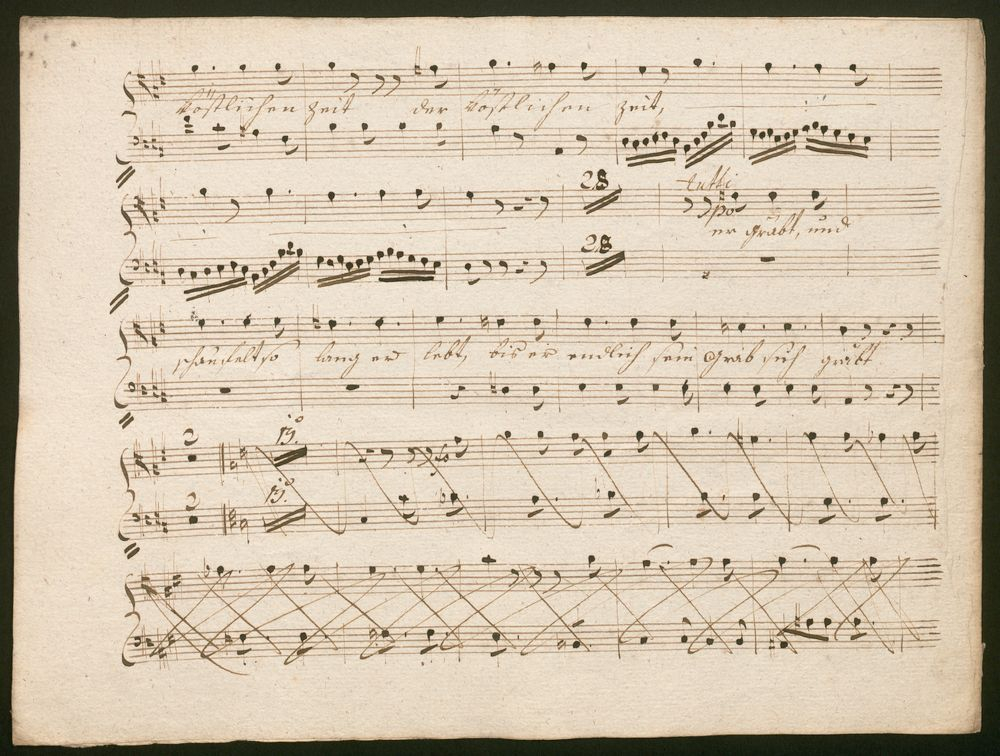 köstlichen Zeit der köstlichen Zeit,
28 tutti
po
er grabt, und
28
schaufelt so lang er lebt, bis er endlich sein Grab sich grabt
2 19.
2 19.